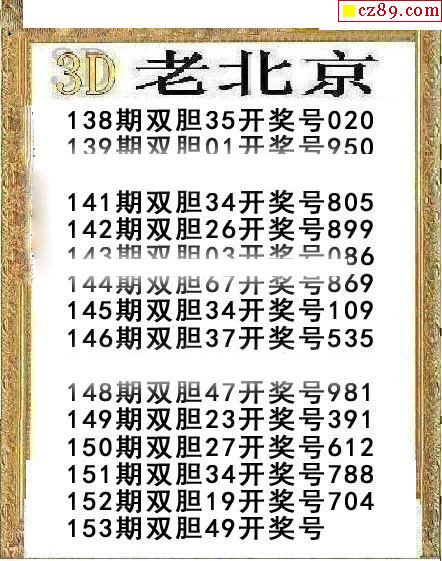 cz89.com
3D 老北京
138期双胆35开奖号020
139期双胆01开奖号950
141期双胆34开奖号805
142期双胆26开奖号899
143期双胆03开奖号086
144期双胆67开奖号869
145期双胆34开奖号109
146期双胆37开奖号535
148期双胆47开奖号981
149期双胆23开奖号391
150期双胆27开奖号612
151期双胆34开奖号788
152期双胆19开奖号704
153期双胆49开奖号